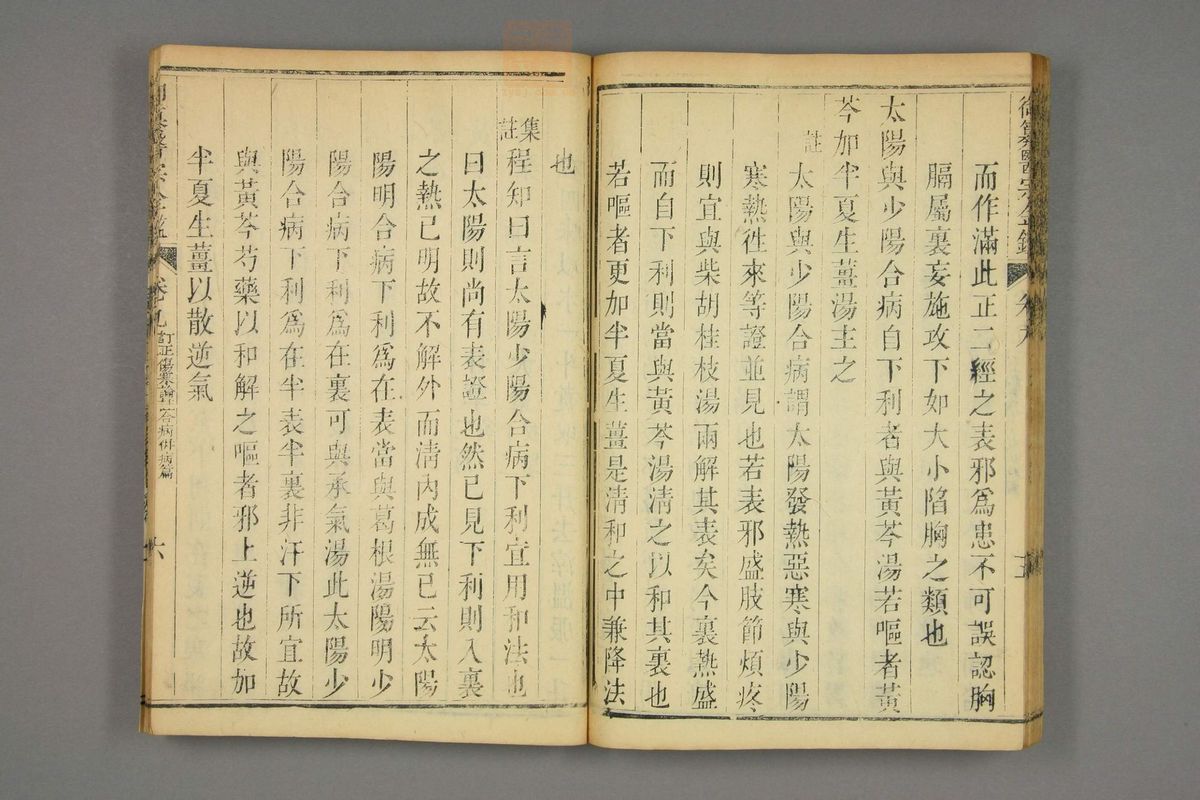 御纂醫宗金鑑 卷九 五
而作滿此正二經之表邪爲患不可誤認胸
膈屬裏妄施攻下如大小陷胸之類也
太陽與少陽合病自下利者與黃芩湯若嘔者黃
芩加半夏生薑湯主之
註
太陽與少陽合病謂太陽發熱惡寒與少陽
寒熱徃來等證並見也若表邪盛肢節煩疼
則宜與柴胡桂枝湯兩解其表矣今裏熱盛
而自下利則當與黃芩湯清之以和其裏也
若嘔者更加半夏生薑是清和之中兼降法
也
集註
程知曰言太陽少陽合病下利宜用和法也
曰太陽則尚有表證也然已見下利則入裏
之熱已明故不解外而清內成無已云太陽
陽明合病下利爲在表當與葛根湯陽明少
陽合病下利爲在裏可與承氣湯此太陽少
陽合病下利爲在半表半裏非汗下所宜故
與黃芩芍藥以和解之嘔者邪上逆也故加
半夏生薑以散逆氣
御纂醫宗金鑑 卷九 訂正傷寒論 合病併病篇 六